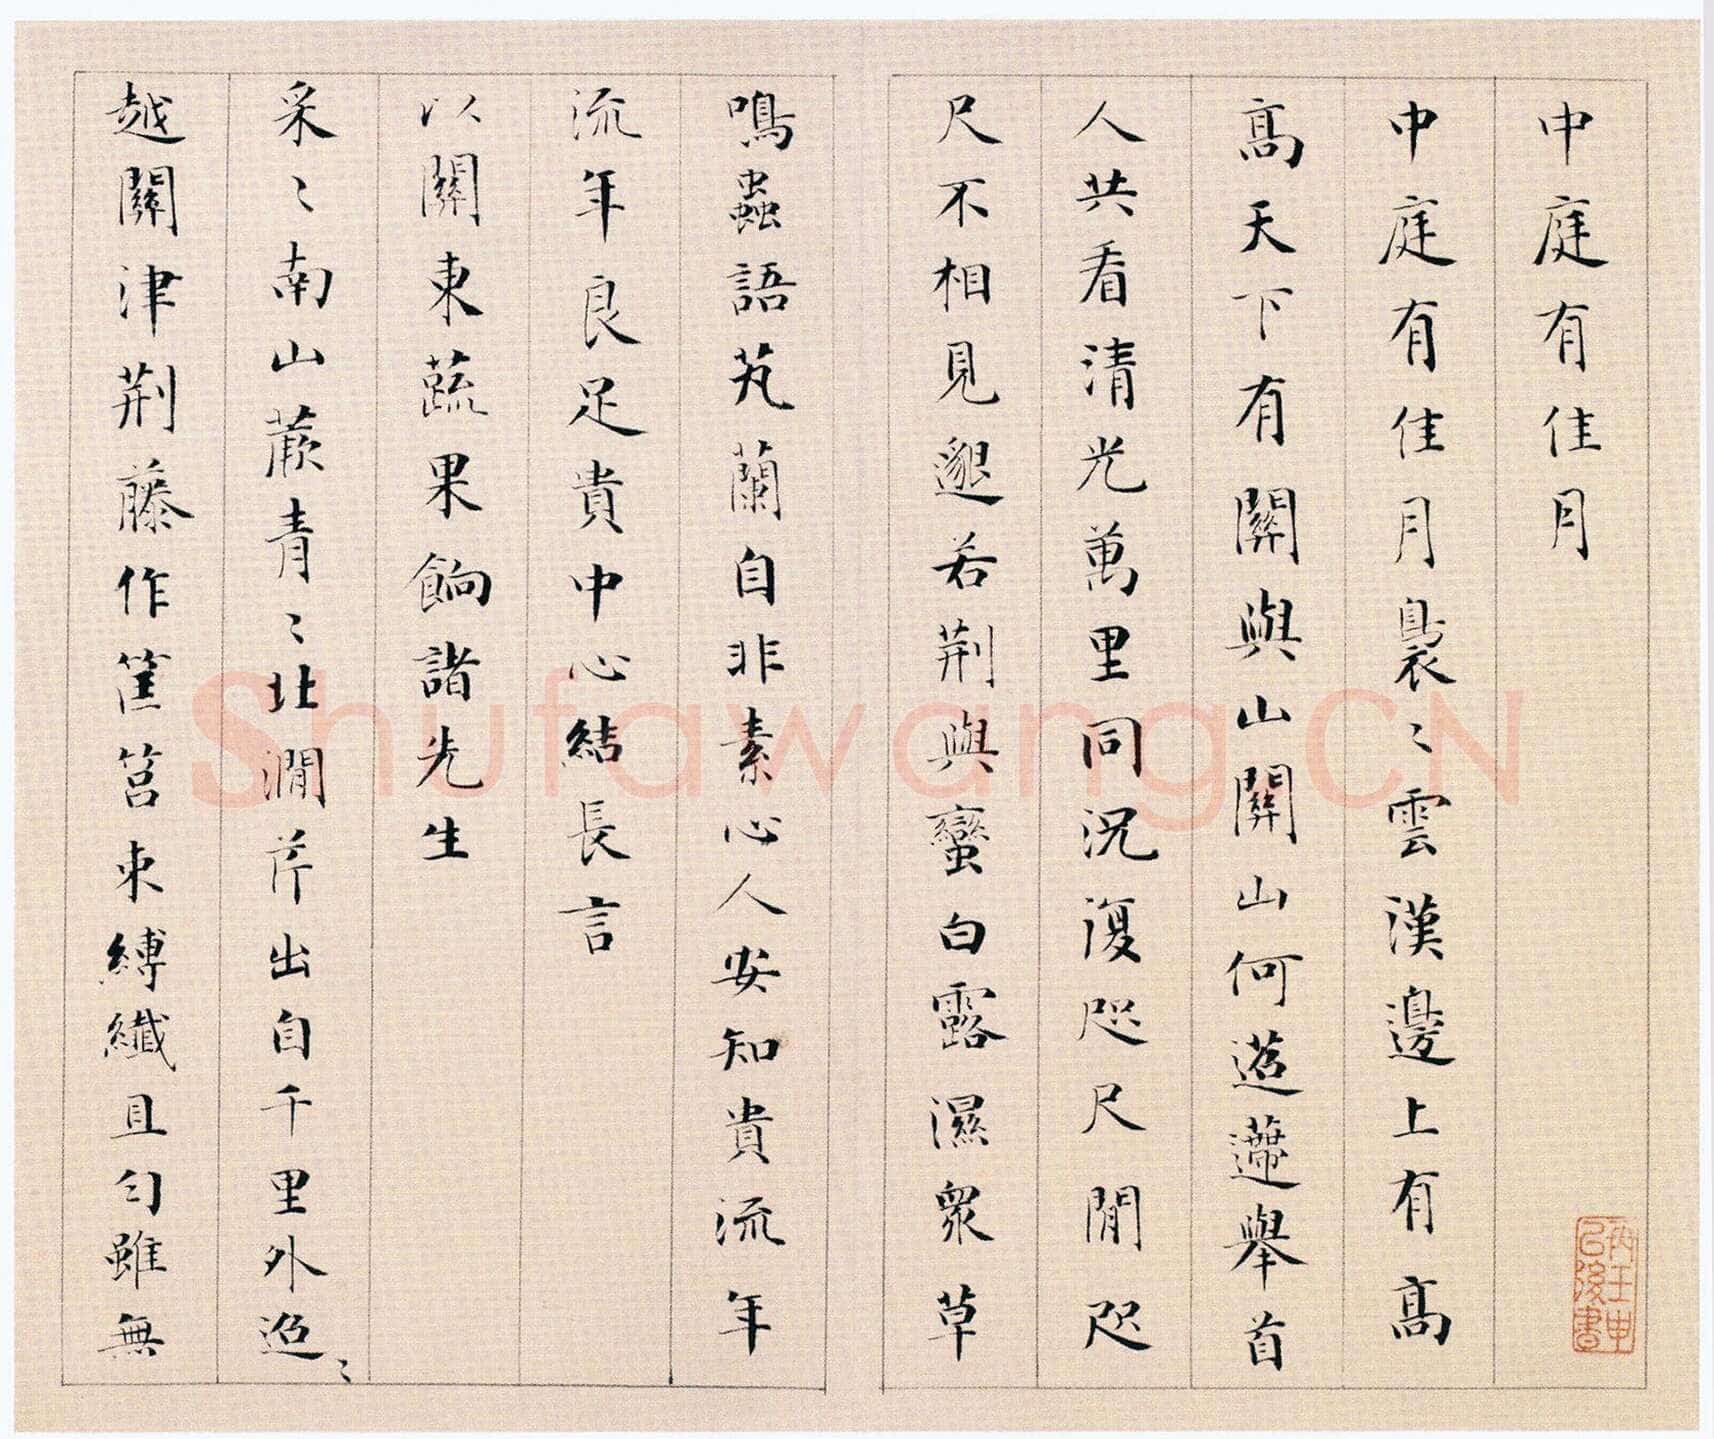 中庭有佳月
中庭有佳月裊〻雲漢邊上有高
高天下有關與山關山何迢遰舉首
人共看清光萬里同況復咫尺閒咫
尺不相見邈若荊與蠻白露濕衆草
鳴蟲語芄蘭自非素心人安知貴流年
流年良足貴中心結長言
以關東蔬果餉諸先生
采〻南山蕨青〻北澗芹出自千里外迢〻
越關津荊藤作筐筥束縛纖且勻雖無
Shufawang.CN